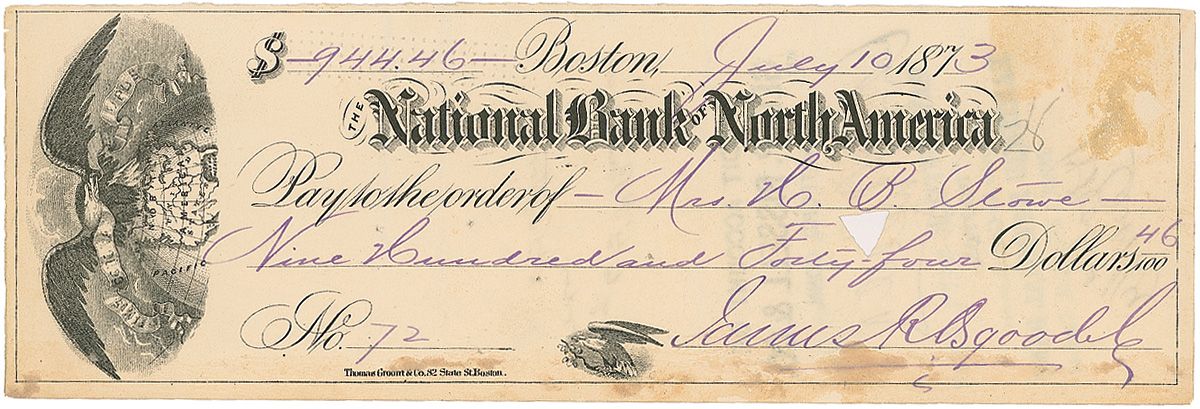 $ -944.46- Boston, July 10 1873
THE National Bank OF North America 28
Pay to the order of - Mrs. H. B. Stowe -
Nine Hundred and Forty-four Dollars 46/100
PACIFIC
No. 72 James R. Osgood & Co
Thomas Groom & Co. 82 State St. Boston.